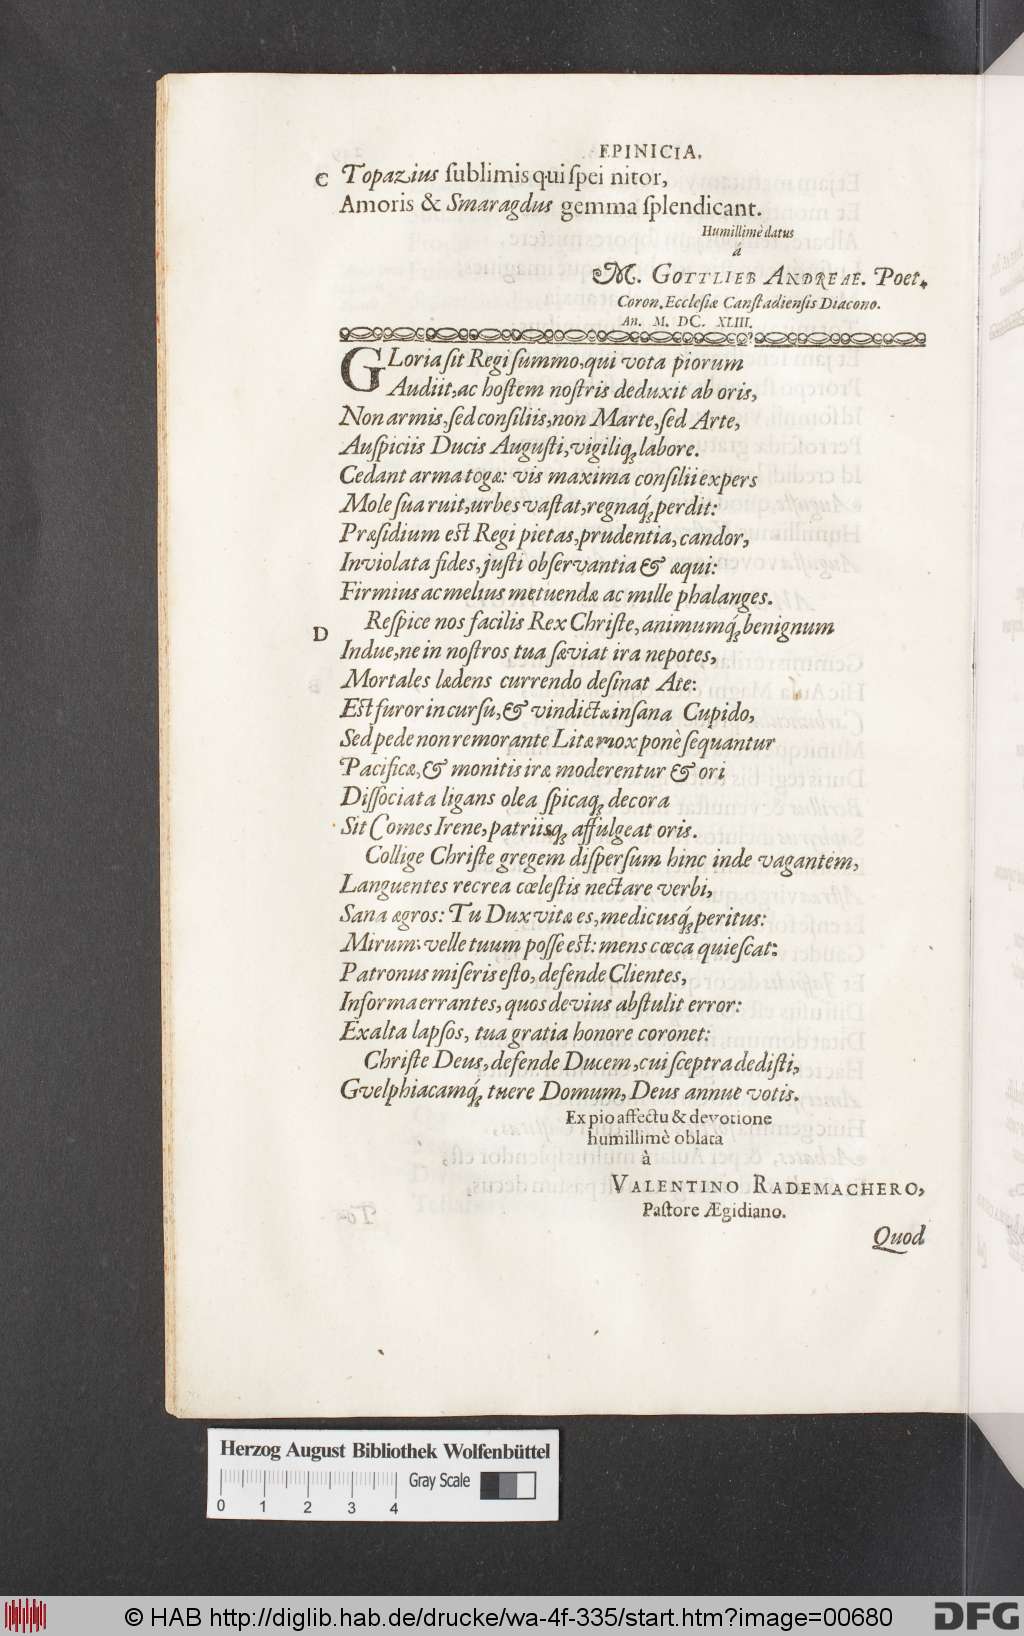 EPINICIA.
C Topazius ſublimis qui ſpei nitor,
Amoris & Smaragdus gemma ſplendicant.
Humillimè datus
à
M. GOTTLIEB ANDREAE. Poet.
Coron. Eccleſiæ Canſtadienſis Diacono.
An. M. DC. XLIII.
GLoria ſit Regi ſummo, qui vota piorum
Audiit, ac hoſtem noſtris deduxit ab oris,
Non armis, ſed conſiliis, non Marte, ſed Arte,
Auſpiciis Ducis Auguſti, vigiliq; labore.
Cedant arma togæ: vis maxima conſilii expers
Mole ſua ruit, urbes vaſtat, regnaq́; perdit:
Præſidium eſt Regi pietas, prudentia, candor,
Inviolata fides, juſti obſervantia & æqui:
Firmius ac melius metuendæ ac mille phalanges.
D Reſpice nos facilis Rex Chriſte, animumq́; benignum
Indue, ne in noſtros tua ſæviat ira nepotes,
Mortales lædens currendo deſinat Ate:
Eſt furor in curſu, & vindictæ inſana Cupido,
Sed pede non remorante Litæ mox ponè ſequantur
Pacificæ, & monitis iræ moderentur & ori
Diſſociata ligans olea ſpicaq; decora
Sit Comes Irene, patriisq; affulgeat oris.
Collige Chriſte gregem diſperſum hinc inde vagantem,
Languentes recrea cœleſtis nectare verbi,
Sana ægros: Tu Dux vitæ es, medicusq́; peritus:
Mirum: velle tuum poſſe eſt: mens cœca quieſcat:
Patronus miſeris eſto, defende Clientes,
Informa errantes, quos devius abſtulit error:
Exalta lapſos, tua gratia honore coronet:
Chriſte Deus, defende Ducem, cui ſceptra dediſti,
Gvelphiacamq́; tuere Domum, Deus annue votis.
Ex pio affectu & devotione
humillimè oblata
à
VALENTINO RADEMACHERO,
Paſtore Ægidiano.
Quod
Herzog August Bibliothek Wolfenbüttel
Gray Scale
0 1 2 3 4
© HAB http://diglib.hab.de/drucke/wa-4f-335/start.htm?image=00680
DFG